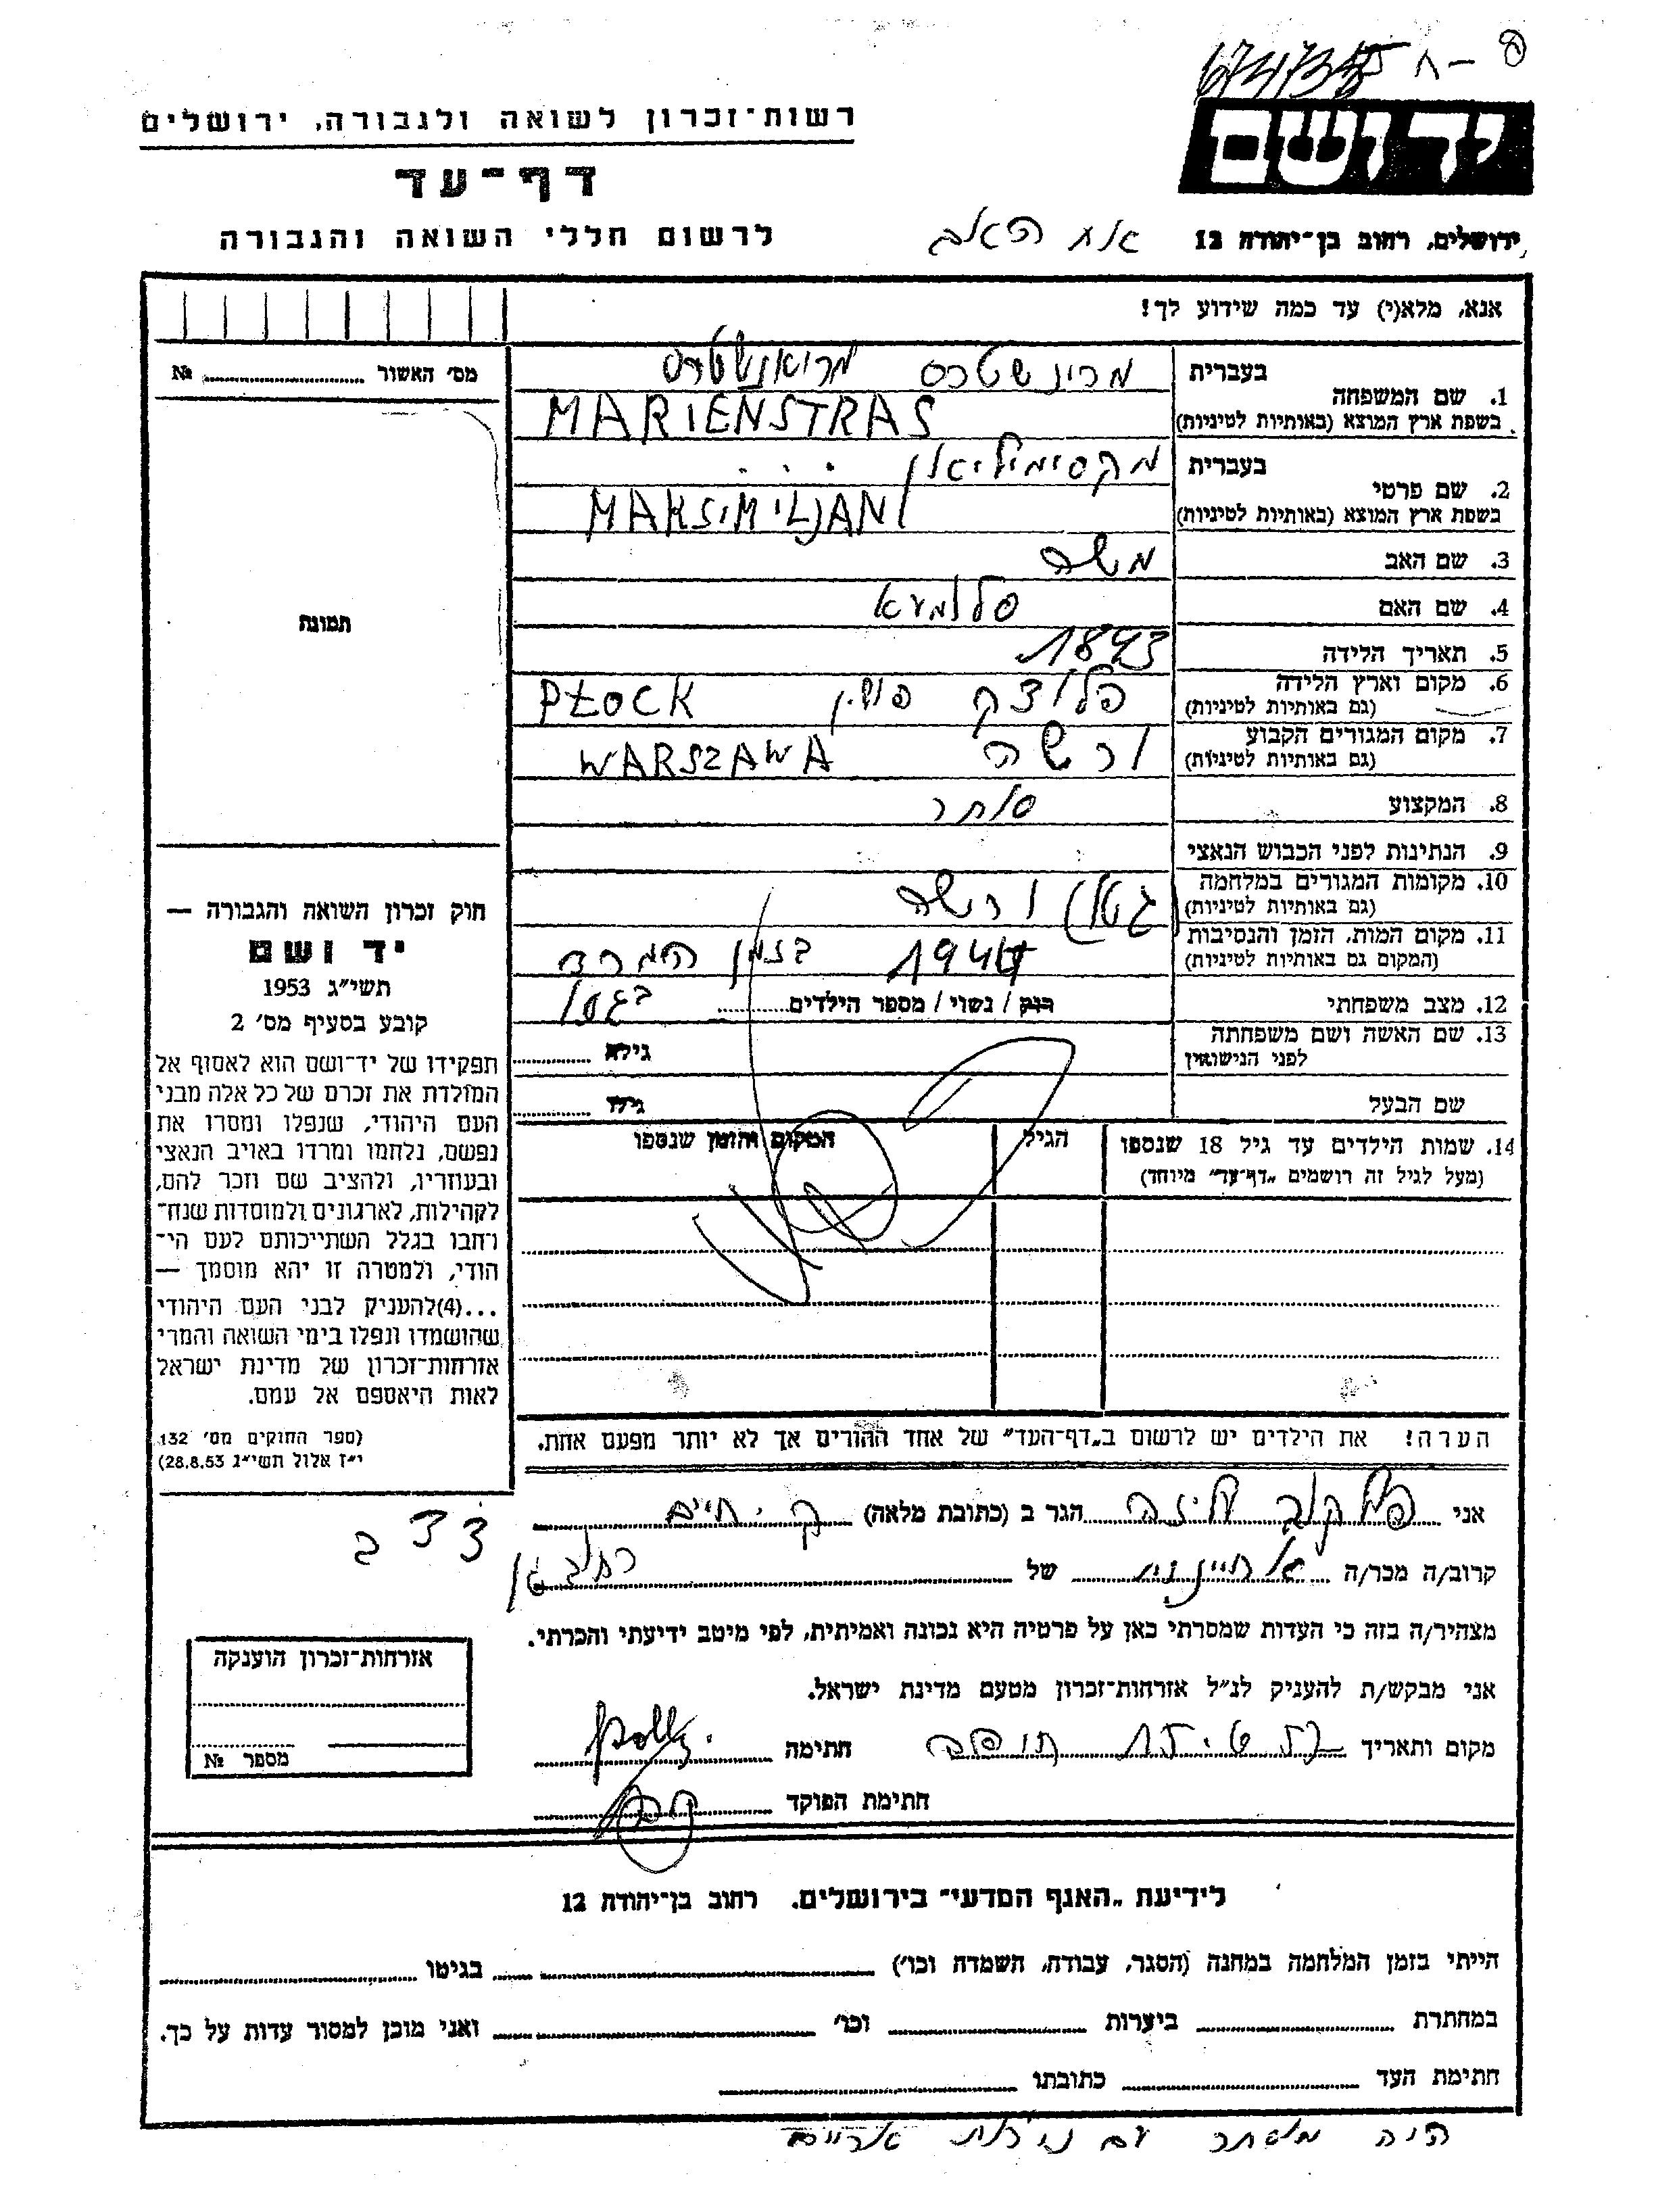 ח - 8
יד ושם
רשות־זכרון לשואה ולגבורה, ירושלים
דף־עד
לרשום חללי השואה והגבורה
ירושלים, רחוב בן־יהודה 12
אח האב
אנא, מלא(י) עד כמה שידוע לך!
מס׳ האשור № 
תמונה
בעברית מרינשטרס
1. שם המשפחה.
בשפת ארץ המוצא (באותיות לטיניות) MARIENSTRAS
בעברית מקסימיליאן
2. שם פרטי
בשפת ארץ המוצא (באותיות לטיניות) MAKSIMILJAN
3. שם האב משה
4. שם האם סלומעא
5. תאריך הלידה 1893
6. מקום וארץ הלידה פלוצק פולין PŁOCK
(גם באותיות לטיניות)
7. מקום המגורים הקבוע ורשה WARSZAWA
(גם באותיות לטיניות)
8. המקצוע סוחר
9. הנתינות לפני הכבוש הנאצי
10. מקומות המגורים במלחמה (גטו) ורשה
(גם באותיות לטיניות)
11. מקום המות, הזמן והנסיבות בזמן המרד
(המקום גם באותיות לטיניות)
12. מצב משפחתי רוק / נשוי / מספר הילדים בגטו
13. שם האשה ושם משפחתה גילה
לפני הנישואין
שם הבעל גילו
14. שמות הילדים עד גיל 18 שנספו הגיל המקום והזמן שנספו
(מעל לגיל זה רושמים „דף־עד” מיוחד)
הערה! את הילדים יש לרשום ב„דף־העד” של אחד ההורים אך לא יותר מפעם אחת.
חוק זכרון השואה והגבורה —
יד ושם
תשי״ג 1953
קובע בסעיף מס׳ 2
תפקידו של יד־ושם הוא לאסוף אל
המולדת את זכרם של כל אלה מבני
העם היהודי, שנפלו ומסרו את
נפשם, נלחמו ומרדו באויב הנאצי
ובעוזריו, ולהציב שם וזכר להם,
לקהילות, לארגונים ולמוסדות שנח־
רחבו בגלל השתייכותם לעם הי־
הודי, ולמטרה זו יהא מוסמך —
...(4)להעניק לבני העם היהודי
שהושמדו ונפלו בימי השואה והמרי
אזרחות־זכרון של מדינת ישראל
לאות היאספם אל עמם.
(ספר החוקים מס׳ 132
י״ז אלול תשי״ג 28.8.53)
אני עליזה הגר ב (כתובת מלאה) ק. חיים
קרוב/ה מכר/ה אחיינית של רחוב
מצהיר/ה בזה כי העדות שמסרתי כאן על פרטיה היא נכונה ואמיתית, לפי מיטב ידיעתי והכרתי.
אני מבקש/ת להעניק לנ״ל אזרחות־זכרון מטעם מדינת ישראל.
מקום ותאריך חיפה חתימה
חתימת הפוקד
אזרחות־זכרון הוענקה
מספר №
לידיעת „האגף המדעי” בירושלים. רחוב בן־יהודה 12
הייתי בזמן המלחמה במחנה (הסגר, עבודה, השמדה וכו׳) בגיטו
במחתרת ביערות וכו׳ ואני מוכן למסור עדות על כך.
חתימת העד כתובתו
היה מוסתר עם ניירות אריים